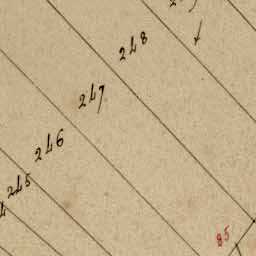 248
247
246
245
85